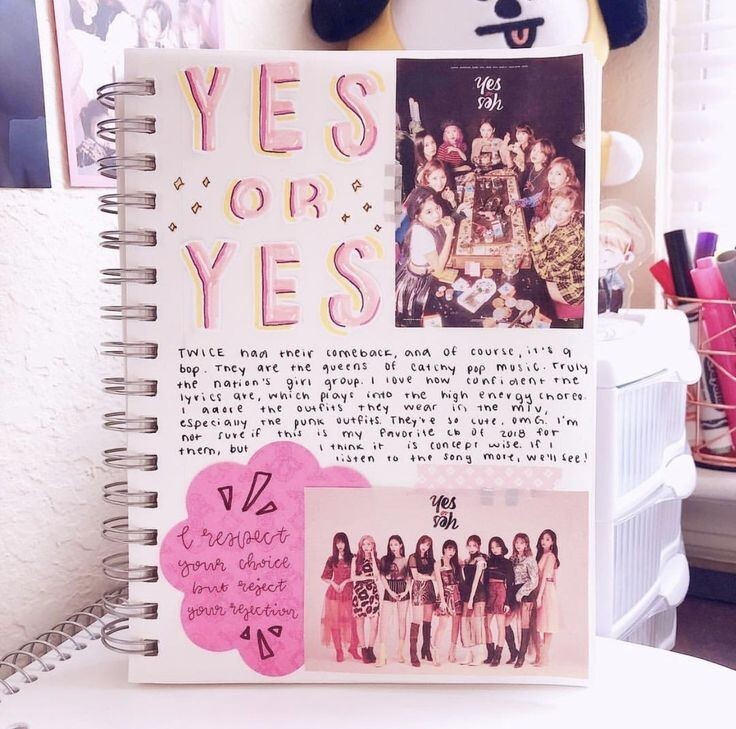 YES
OR
YES
Yes
or
Yes
TWICE had their comeback, and of course, it's a
bop. They are the queens of catchy pop music. Truly
the nation's girl group. I love how confident the
lyrics are, which plays into the high energy choreo.
I adore the outfits they wear in the m/v,
especially the punk outfits. They're so cute, omg. I'm
not sure if this is my favorite cb of 2018 for
them, but I think it is concept wise. If I
listen to the song more, we'll see!
I respect
your choice
but reject
your rejection
Yes
or
Yes